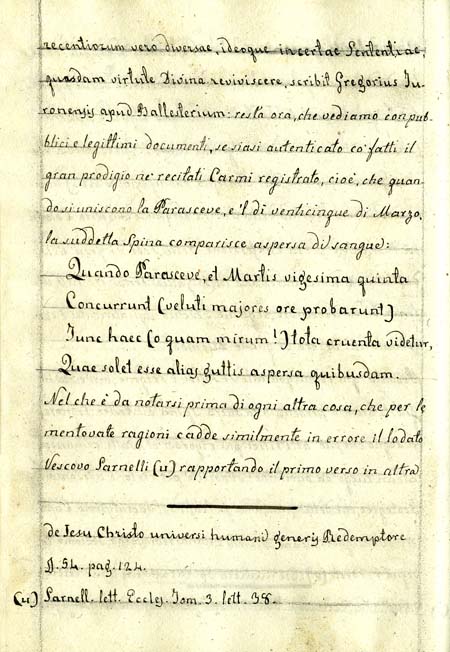 recentiorum vero diversae, ideoque incertae Sententiae,
quasdam virtute Divina reviviscere, scribit Gregorius Tu-
ronensis apud Ballesterium: resta ora, che vediamo con pub-
blici e legittimi documenti, se siasi autenticato co' fatti il
gran prodigio ne' recitati Carmi registrato, cioè, che quan-
do si uniscono la Parasceve, e 'l dì venticinque di Marzo,
la suddetta Spina comparisce aspersa di sangue:
Quando Parasceve, et Martis vigesima quinta
Concurrunt (veluti majores ore probarunt)
Tunc haec (o quam mirum!) tota cruenta videtur,
Quae solet esse alias guttis aspersa quibusdam.
Nel che è da notarsi prima di ogni altra cosa, che per le
mentovate ragioni cadde similmente in errore il lodato
Vescovo Sarnelli (u) rapportando il primo verso in altra
de Jesu Christo universi humani generis Redemptore
§. 54. pag. 124.
(u) Sarnell. lett. Eccles. Tom. 3. lett. 38.